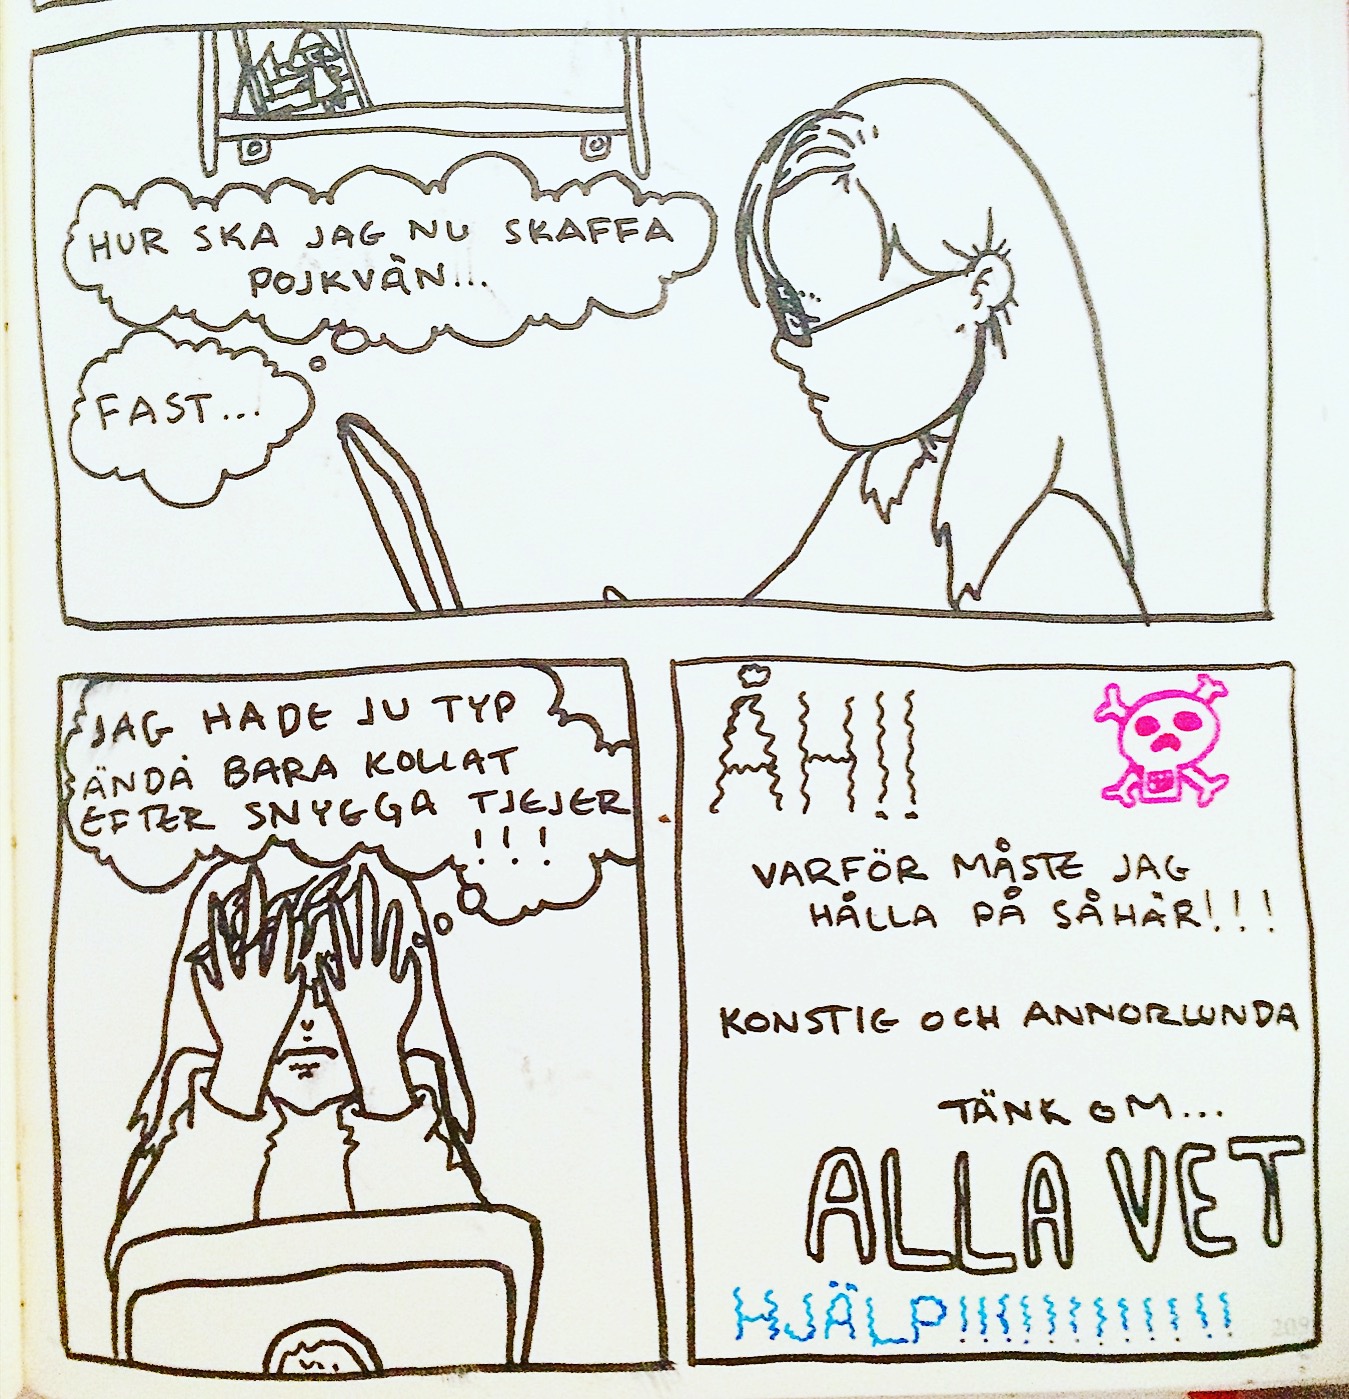 HUR SKA JAG NU SKAFFA
POJKVÄN...
FAST...
JAG HADE JU TYP
ÄNDÅ BARA KOLLAT
EFTER SNYGGA TJEJER
!!!
ÅH!!
VARFÖR MÅSTE JAG
HÅLLA PÅ SÅHÄR!!!
KONSTIG OCH ANNORLUNDA
TÄNK OM...
ALLA VET
HJÄLP!!!!!!!!!!!!
209